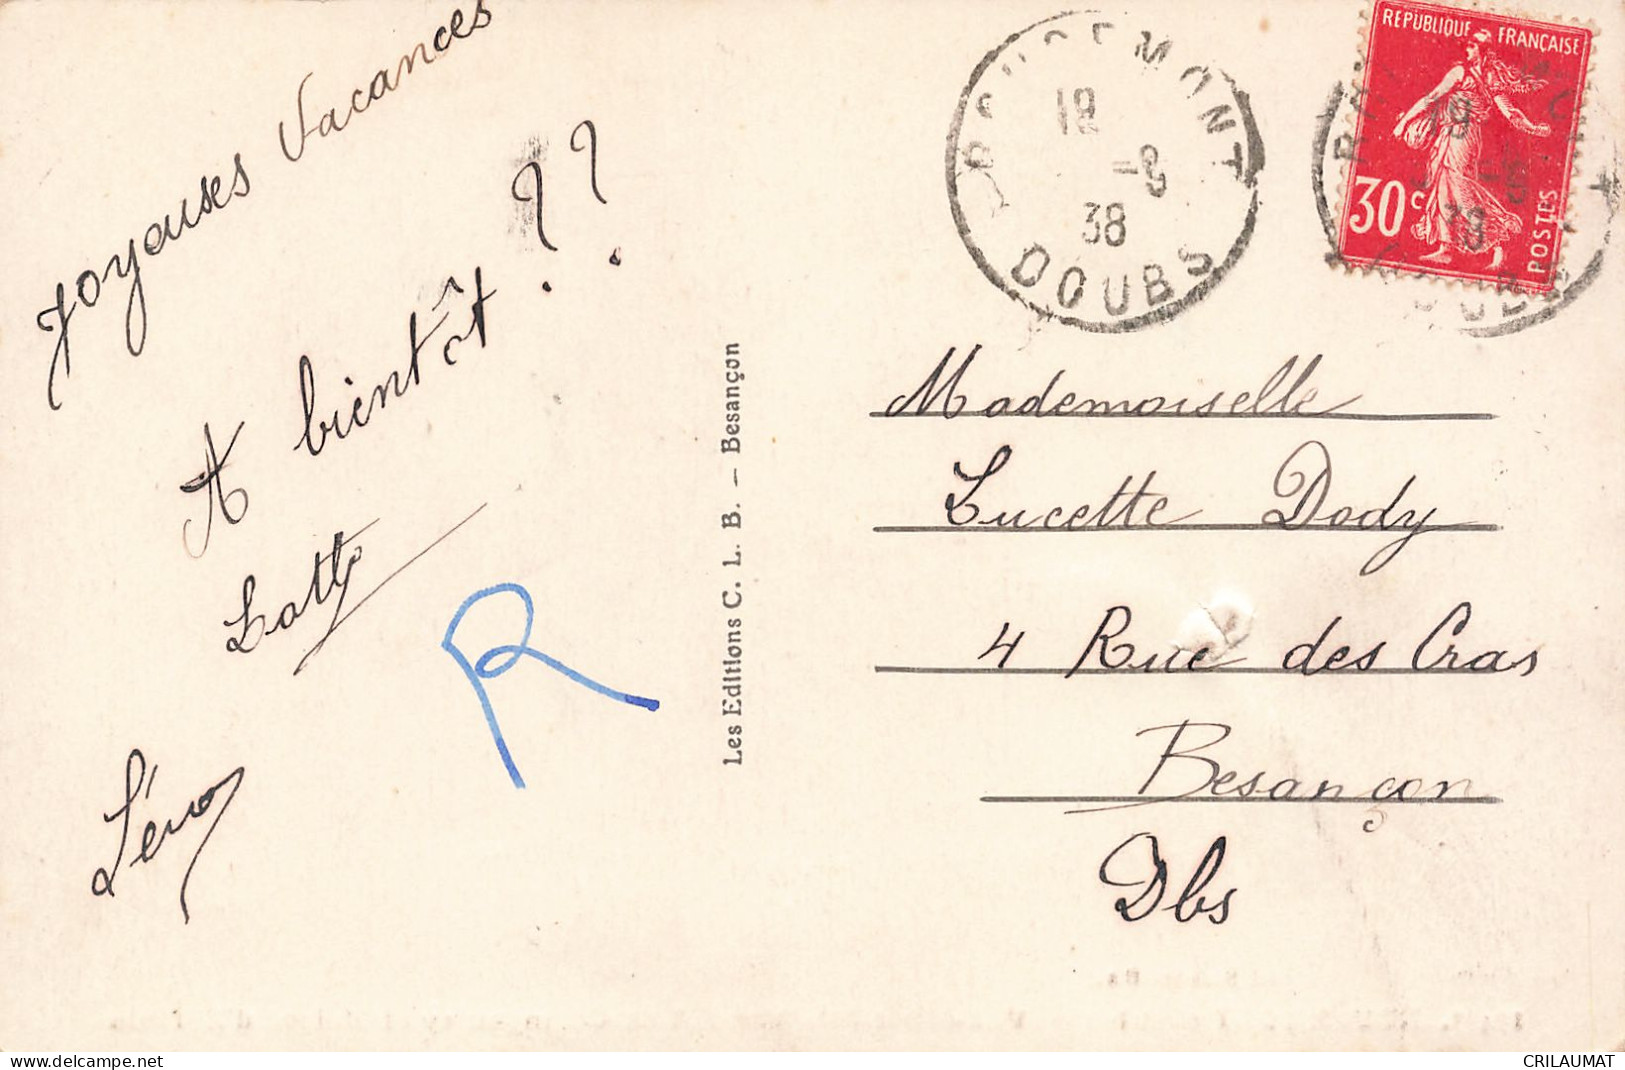 Joyeuses Vacances
A bientôt ??
Lotty
Léro
R
Les Editions C. L. B. – Besançon
ROUGEMONT
18
-8
38
DOUBS
REPUBLIQUE FRANÇAISE
30c
POSTES
19
38
Mademoiselle
Lucette Dody
4 Rue des Cras
Besançon
Dbs
delcampe.net
CRILAUMAT